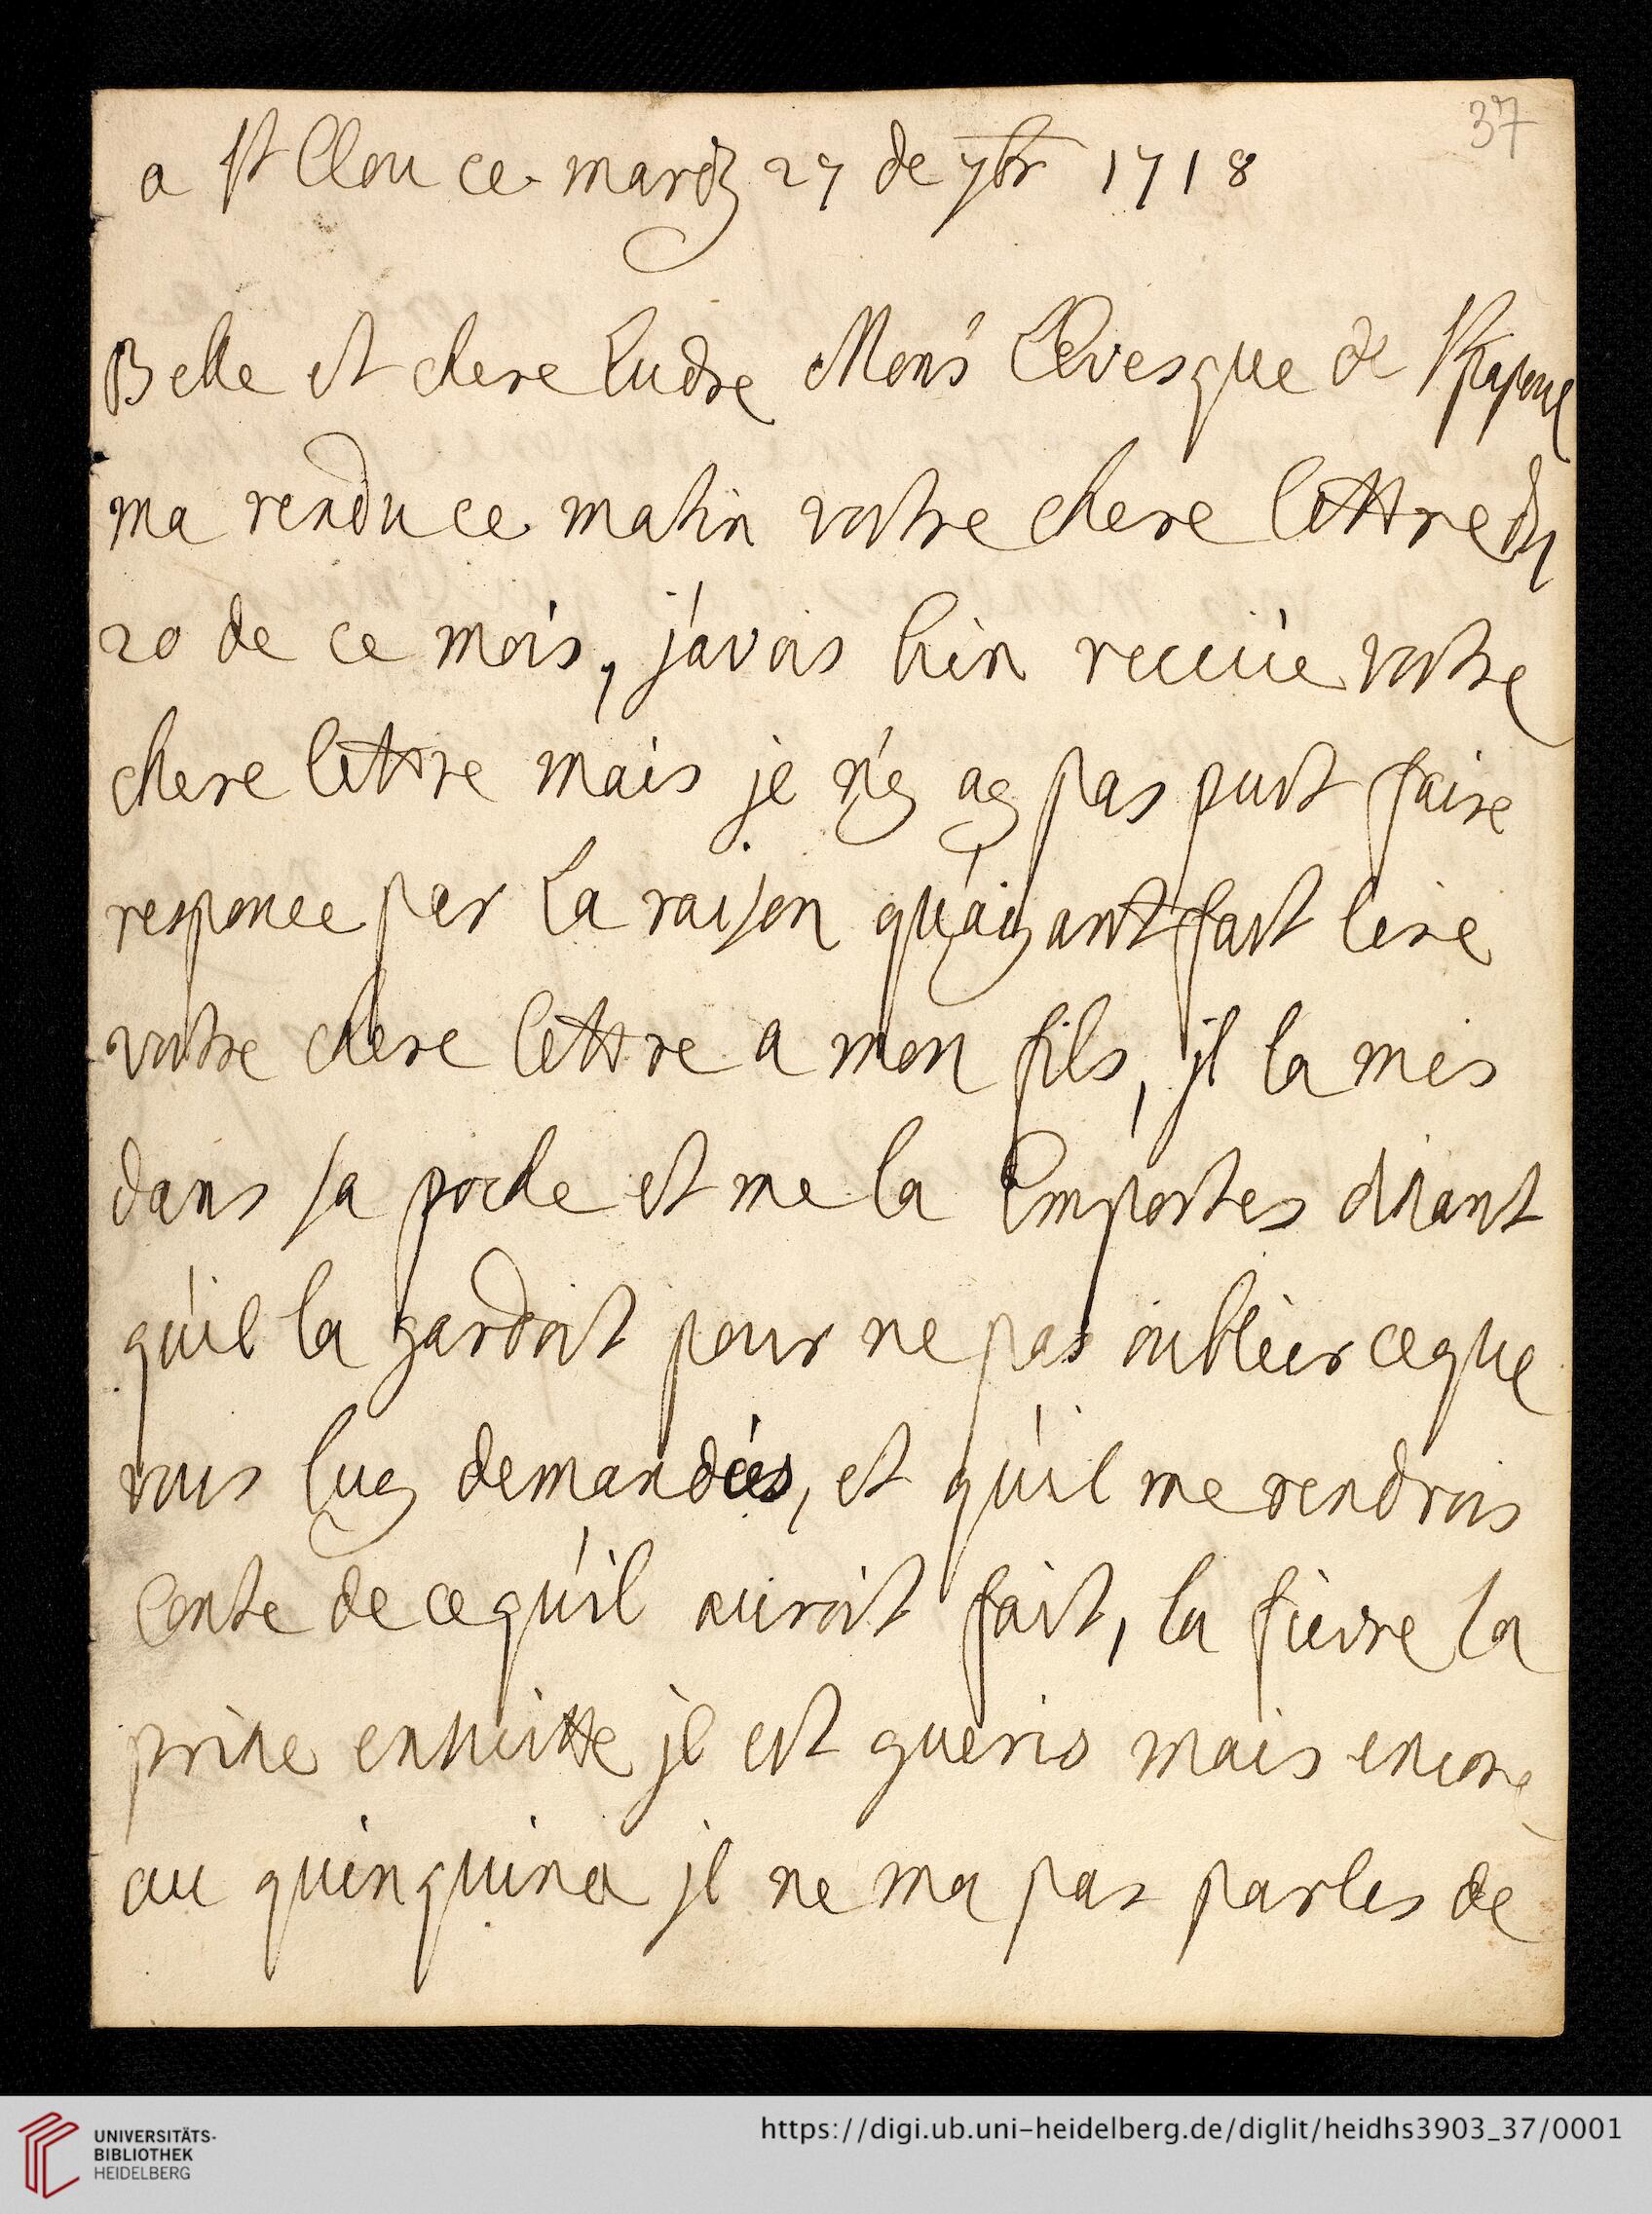 37
a St Clou ce mardy 27 de 7br 1718
Belle et chere Ludre Mons l'Evesque de St papoul
ma rendu ce matin vostre chere lettre du
20 de ce mois, j'avois bien receüe vostre
chere lettre mais je n'y ay pas pust faire
responce par La raison qu'aiyant fait lire
vostre chere lettre a mon fils, jl la mis
dans sa poche et me la Emportes disant
qu'il la gardoit pour ne pas oublier ce que
vous luy demandés, et qu'il me rendrois
Conte de ce qu'il auroit fait, la fievre la
prise ensuitte jl est gueris mais encore
au quinquina jl ne ma pas parles de
UNIVERSITÄTS-
BIBLIOTHEK
HEIDELBERG
https://digi.ub.uni-heidelberg.de/diglit/heidhs3903_37/0001